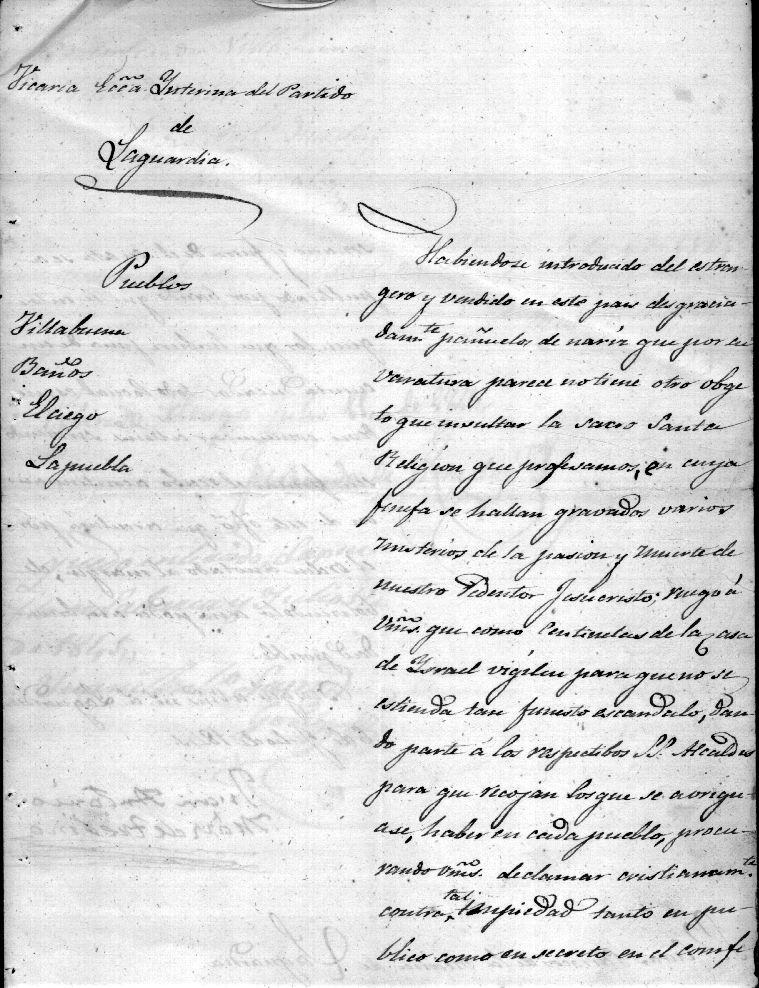 Vicaria Ecc.ª Ynterina del Partido
de
Laguardia.
Pueblos
Villabuena
Baños
Elciego
Lapuebla
Habiendose introducido del estran-
gero y vendido en este pais desgracia-
dam.te pañuelos de nariz que por su
varatura parece no tiene otro obge
to que insultar la sacro Santa
Religion que profesamos, en cuya
se hallan gravados varios
misterios de la pasion y muerte de
nuestro Redentor Jesucristo; ruego á
Vms. que como Centinelas de la Casa
de Ysrael vigilen para que no se
estienda tan funesto escandalo, dan
do parte á los respectibos SS. Alcaldes
para que recojan los que se aorigu-
ase, haber en cada pueblo, procu-
rando Vms. declamar cristianam.te
contra tal impiedad tanto en pu-
blico como en secreto en el comfe